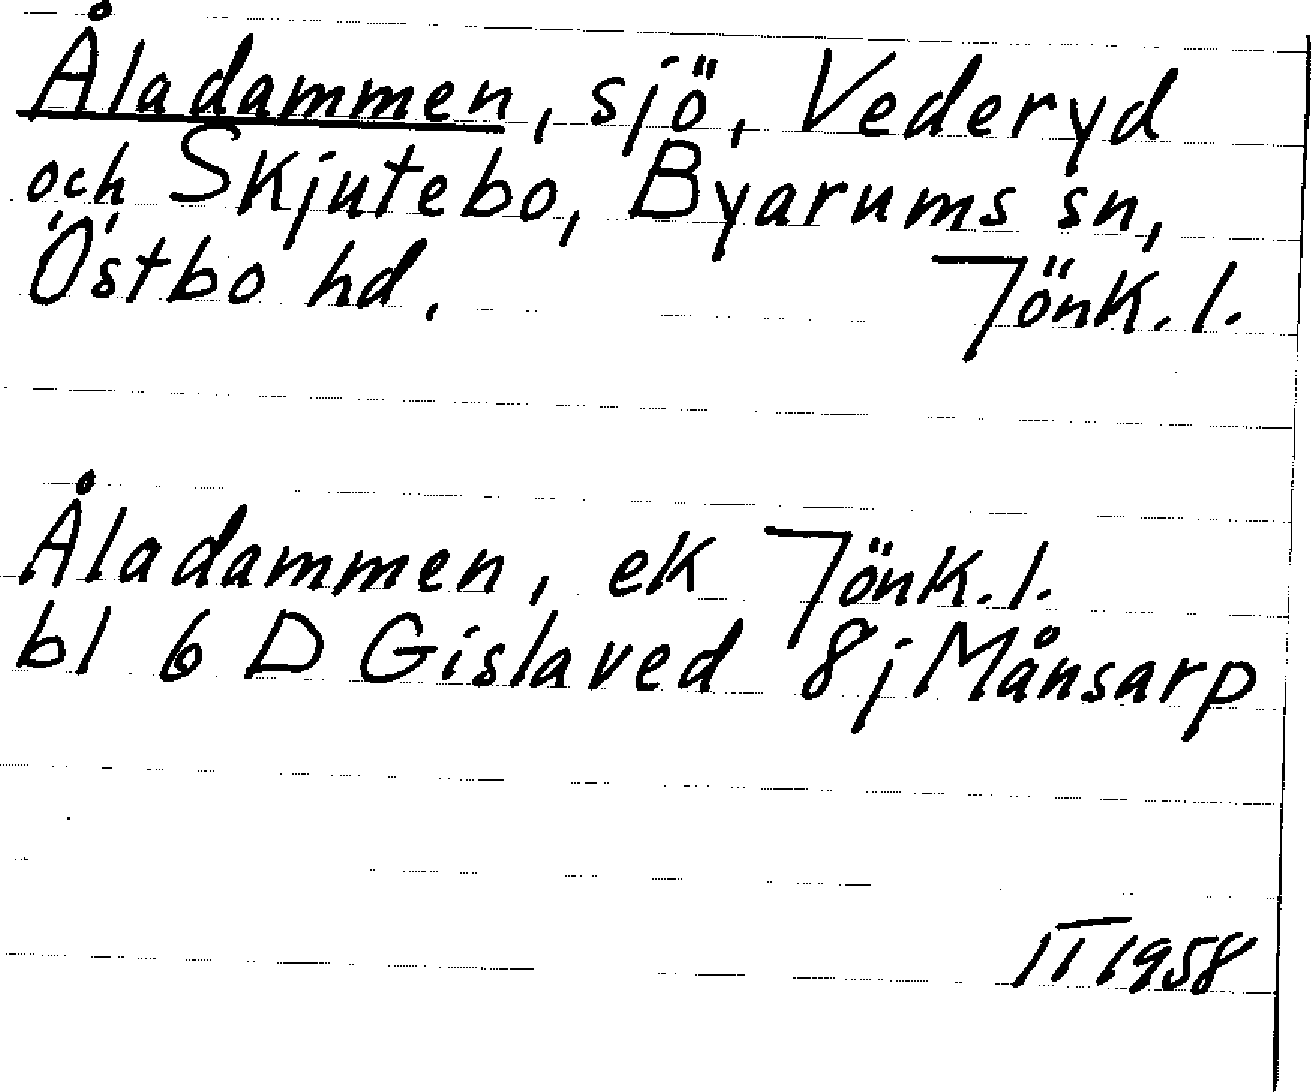 Åladammen, sjö, Vederyd
och Skjutebo, Byarums sn,
Östbo hd. Jönk. l.
Åladammen, ek Jönk. l.
bl 6 D Gislaved 8j Månsarp
IT 1958